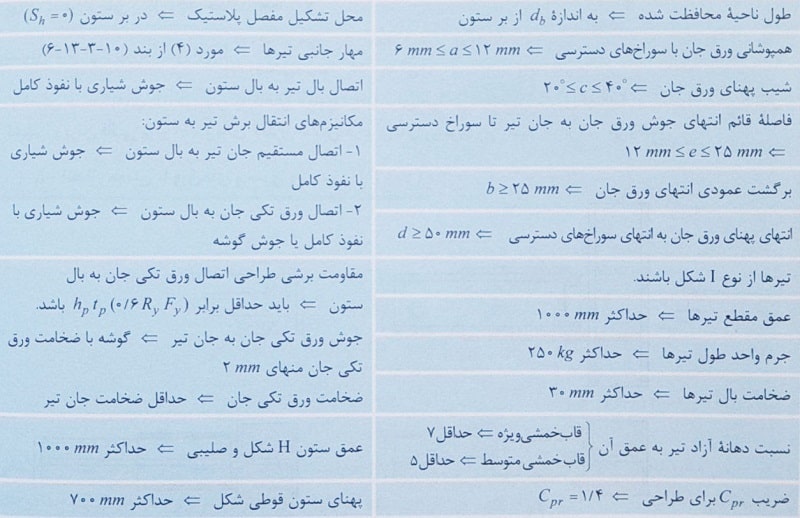 طول ناحیهٔ محافظت شده ⇐ به اندازهٔ d_b از بر ستون
همپوشانی ورق جان با سوراخ‌های دسترسی ⇐ ۶ mm ≤ a ≤ ۱۲ mm
شیب پهنای ورق جان ⇐ ۲۰° ≤ c ≤ ۴۰°
فاصلهٔ قائم انتهای جوش ورق جان به جان تیر تا سوراخ دسترسی
⇐ ۱۲ mm ≤ e ≤ ۲۵ mm
برگشت عمودی انتهای ورق جان ⇐ b ≥ ۲۵ mm
انتهای پهنای ورق جان به انتهای سوراخ‌های دسترسی ⇐ d ≥ ۵۰ mm
تیرها از نوع I شکل باشند.
عمق مقطع تیرها ⇐ حداکثر ۱۰۰۰ mm
جرم واحد طول تیرها ⇐ حداکثر ۲۵۰ kg
ضخامت بال تیرها ⇐ حداکثر ۳۰ mm
نسبت دهانهٔ آزاد تیر به عمق آن
قاب‌خمشی‌ویژه ⇐ حداقل ۷
قاب‌خمشی‌متوسط ⇐ حداقل ۵
ضریب C_pr برای طراحی ⇐ C_pr = ۱/۴
محل تشکیل مفصل پلاستیک ⇐ در بر ستون (S_h = ۰)
مهار جانبی تیرها ⇐ مورد (۴) از بند (۱۰-۳-۱۳-۶)
اتصال بال تیر به بال ستون ⇐ جوش شیاری با نفوذ کامل
مکانیزم‌های انتقال برش تیر به ستون:
۱- اتصال مستقیم جان تیر به بال ستون ⇐ جوش شیاری
با نفوذ کامل
۲- اتصال ورق تکی جان به بال ستون ⇐ جوش شیاری با
نفوذ کامل یا جوش گوشه
مقاومت برشی طراحی اتصال ورق تکی جان به بال
ستون ⇐ باید حداقل برابر h_p t_p (۰/۶ R_y F_y) باشد.
جوش ورق تکی جان به جان تیر ⇐ گوشه با ضخامت ورق
تکی جان منهای ۲ mm
ضخامت ورق تکی جان ⇐ حداقل ضخامت جان تیر
عمق ستون H شکل و صلیبی ⇐ حداکثر ۱۰۰۰ mm
پهنای ستون قوطی شکل ⇐ حداکثر ۷۰۰ mm